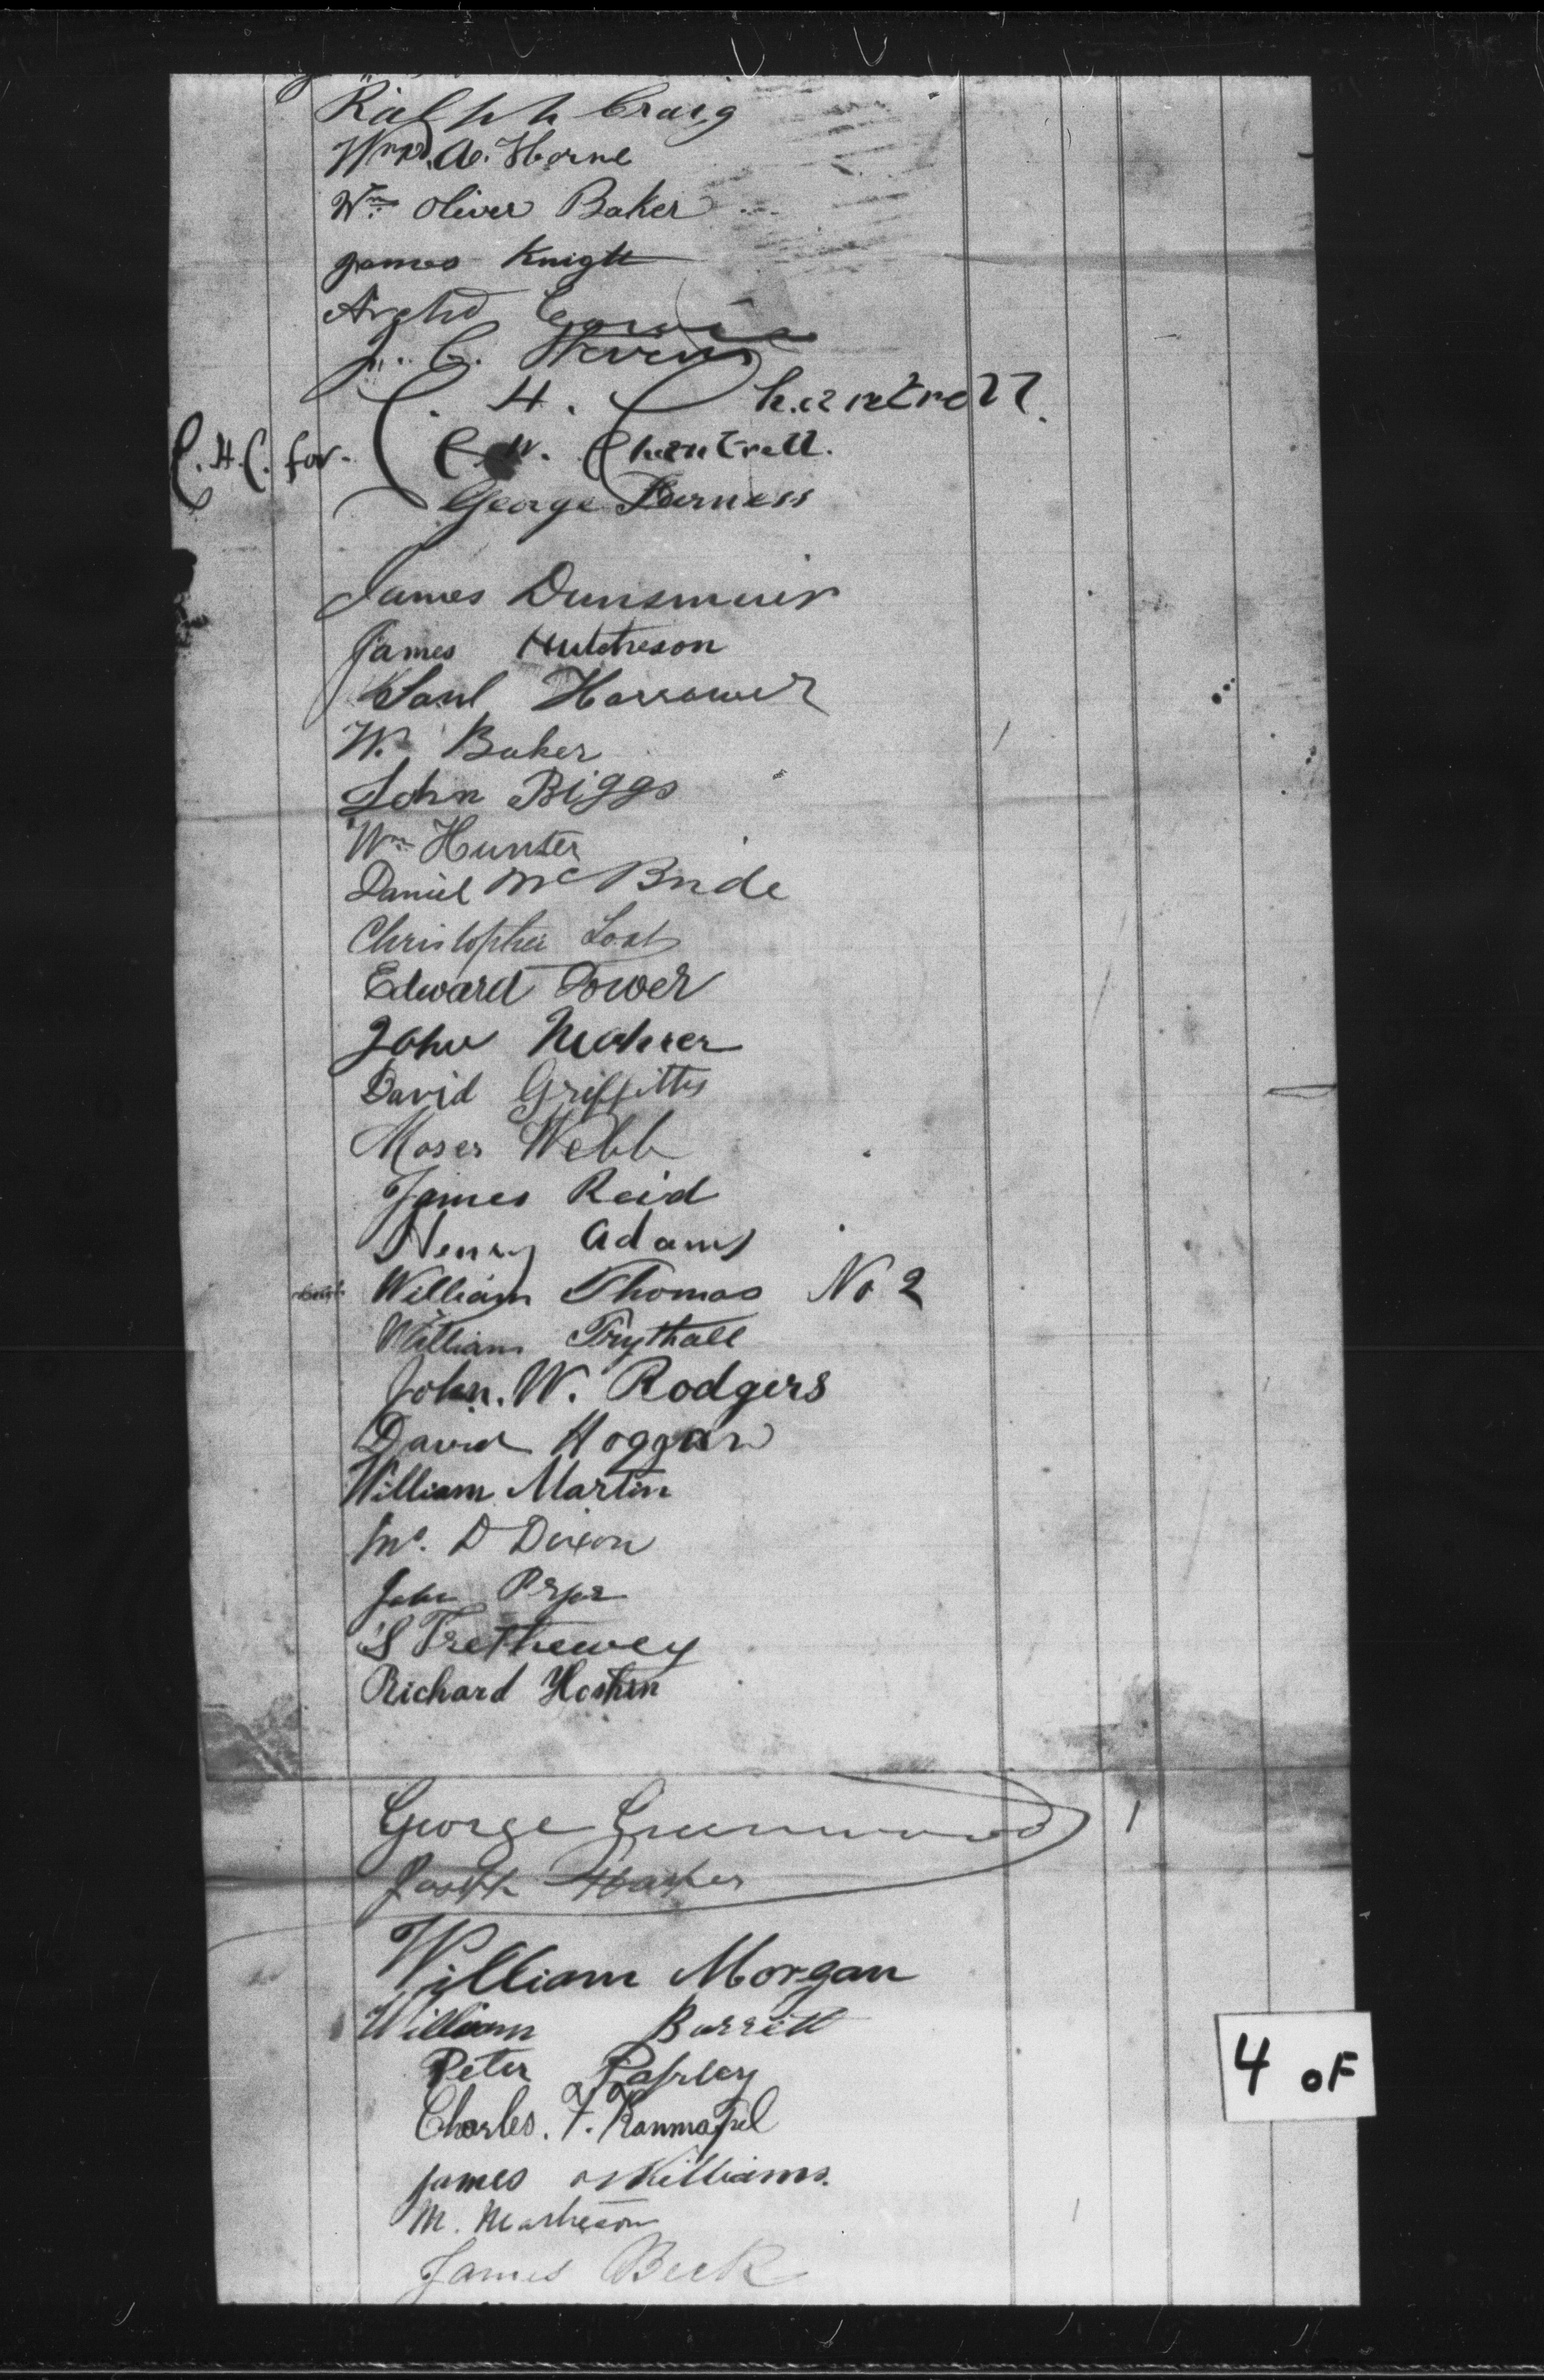 Ralph Craig
Wm. A. Horne
Wm Oliver Baker
James Knight
Archd
J. C.
C. H. Chantrell
C. H. C. for C. W. Chantrell.
George Furness
James Dunsmuir
James Hutcheson
Saml Harrower
W. Baker
John Biggs
Wm Hunter
Daniel McBride
Christopher
Edward Power
John
David Griffiths
Moses Webb
James Reid
Henry Adams
William Thomas No 2
William Trythall
John. W. Rodgers
David Hoggan
William Martin
D Dixon
John Pryor
S Trethewey
Richard Hosken
George Greenwood
Joseph
William Morgan
William Barrett
Peter
Charles. F.
James Williams.
M. Matheson
James Beck
4 OF